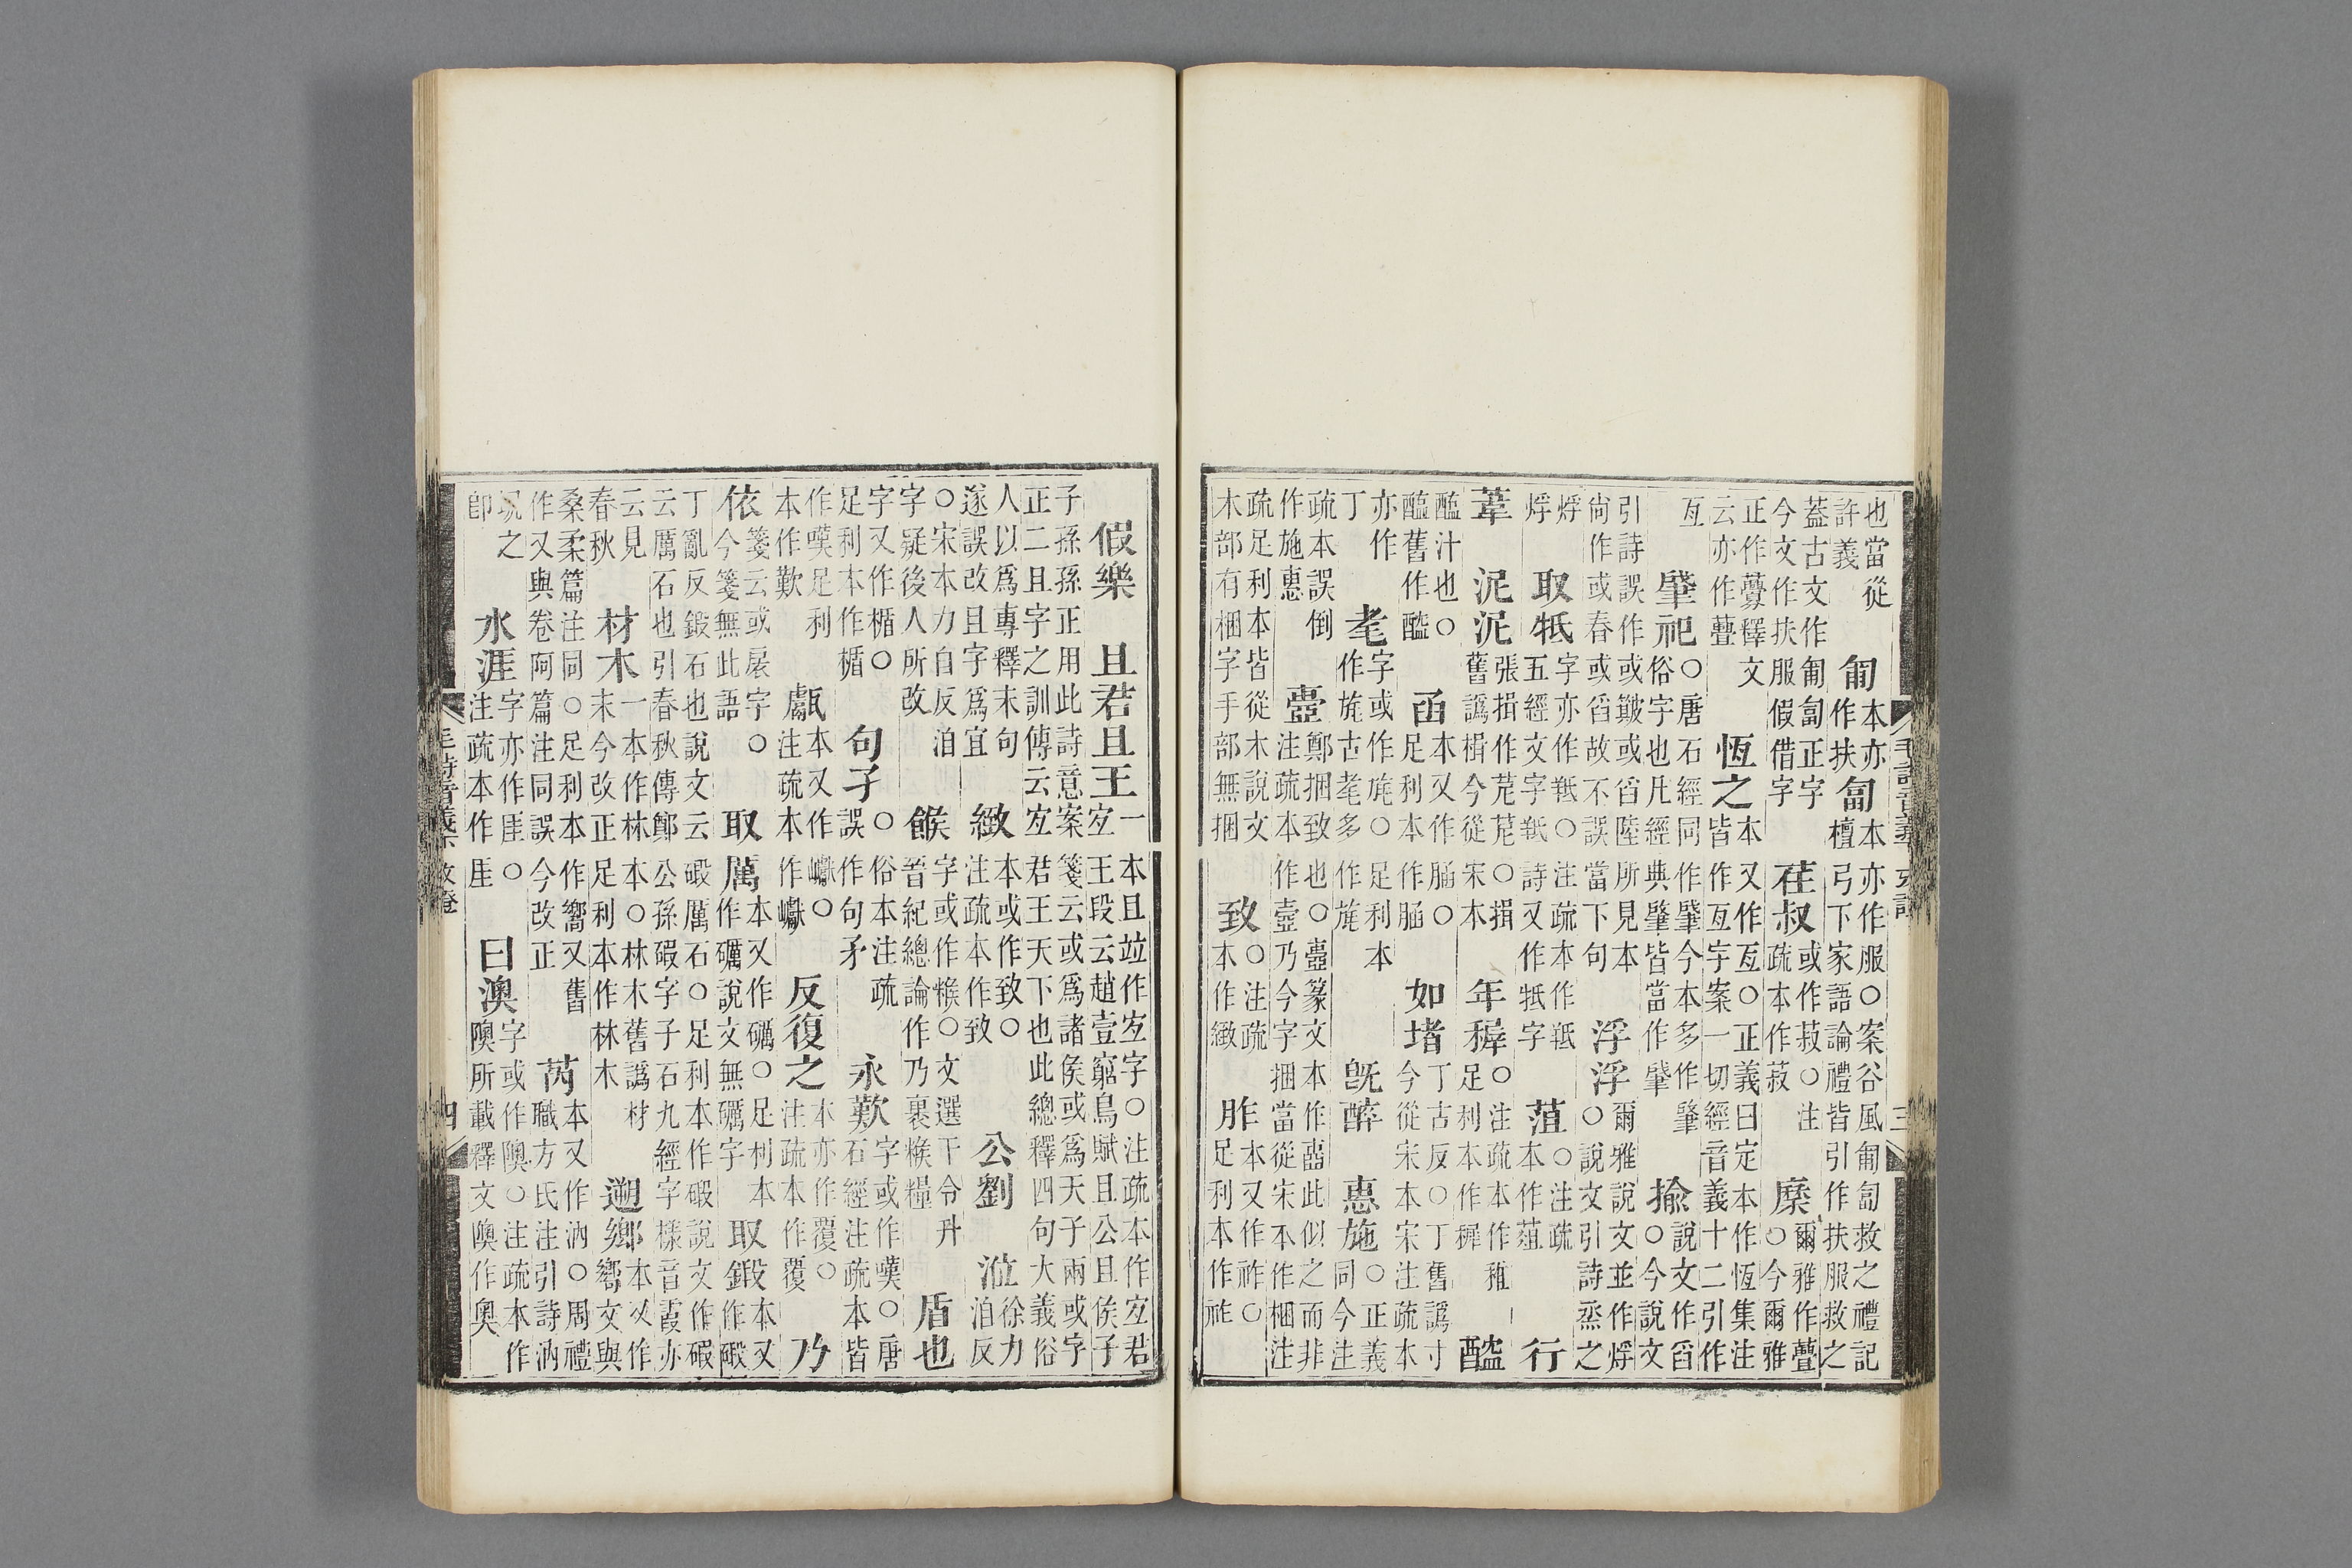 也當從許義 匍本亦作扶匐本亦作服○案谷風匍匐救之禮記檀弓下家語論禮皆引作扶服救之
蓋古文作匍匐正字今文作扶服假借字 荏叔或作菽○注疏本作菽 穈○爾雅作虋今爾雅
正作虋釋文云亦作虋 恆之本又作亙○正義曰定本作恆集注皆作亙字案一切經音義十二引作
亙 肈祀○唐石經同作肈今本多作肇俗字也凡經典肈皆當作肈 揄○說文作舀今說文
引詩誤作或䵼或舀陸所見本尙作或舂或舀故不誤當下句 浮浮爾雅說文並作烰○說文引詩烝之
烰烰 取羝字亦作羝○注疏本作羝五經文字羝詩又作牴字 菹○注疏本作葅 行
葦 泥泥張揖作苨苨○揖舊譌楫今從宋本 年穉○注疏本作稚足利本作穉 醓
醓汁也○醓舊作醢 函本又作䐄○足利本作䐄 如堵丁古反○丁舊譌寸今從宋本宋注疏本
亦作丁 耄字或作旄○足利本作旄古耄多作旄 旣醉 惠施○正義同今注
疏本誤倒作施惠 壼鄭捆致也○壼篆文本作壼此似之而非注疏本作壼乃今字捆當從宋本作梱注
疏足利本皆從木說文木部有梱字手部無捆 致○注疏本作緻 胙本又作祚○足利本作祚
假樂 且君且王一本且竝作宐字○注疏本作宐君宐王段云趙壹窮鳥賦且公且侯子
子孫孫正用此詩意案箋云或爲諸侯或爲天子兩或字正二且字之訓傳云宐君王天下也此總釋四句大義俗
人以爲專釋末句遂誤改且字爲宜 緻本或作致○注疏本作致 公劉 涖徐力洎反
○宋本力自反洎字疑後人所改 餱字或作糇○文選干令升晉紀總論作乃裹糇糧 盾也
字又作楯○足利本作楯 句矛○俗本注疏誤作句矛 永歎字或作嘆○唐石經注疏本皆
作嘆足利本作歎 甗本又作巘○注疏本作巘 反復之本亦作覆○注疏本作覆 乃
依箋云或扆字○今箋無此語 取厲本又作礪○足利本作礪說文無礪字 取鍛本又作碫
丁亂反鍛石也說文云碫厲石○足利本作碫說文作碬云厲石也引春秋傳鄭公孫碬字子石九經字樣音霞亦
云見春秋 材木一本作林本○林木舊譌材末今改正足利本作林木 遡鄉本又作嚮文與
桑柔篇注同○足利本作嚮又舊作又與卷阿篇注同誤今改正 芮本又作汭○周禮職方氏注引詩汭
之卽 水涯字亦作厓○注疏本作厓 曰澳字或作隩○注疏本作隩所載釋文隩作奧
毛詩音義下攷證
四
三